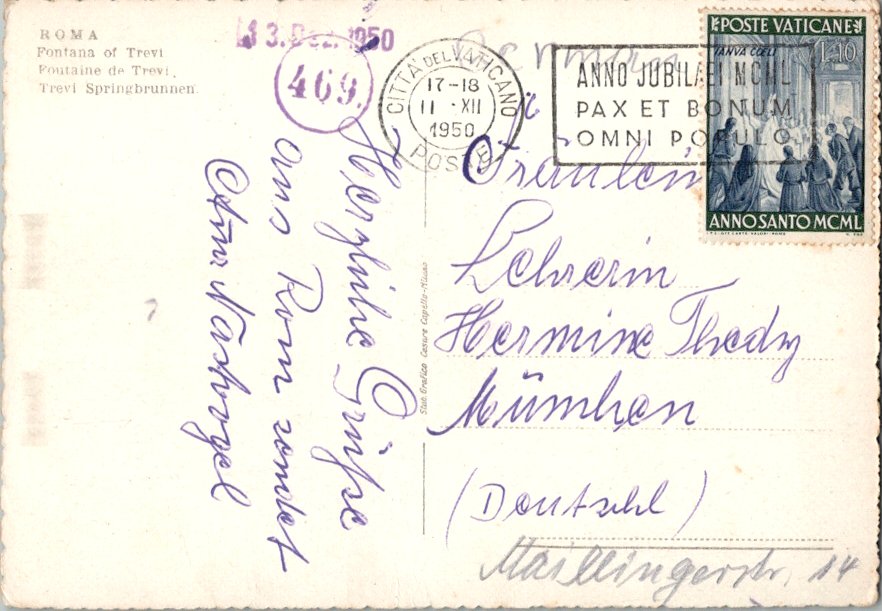 ROMA
Fontana of Trevi
Fontaine de Trevi
Trevi Springbrunnen.
13. Dez. 1950
469.
CITTÀ DEL VATICANO
17-18
11 · XII
1950
POSTE
ANNO JUBILAEI MCML
PAX ET BONUM
OMNI POPULO
POSTE VATICANE
IANVA COELI
L.10
ANNO SANTO MCML
Herzliche Grüße
aus Rom sendet
Stab. Grafico Cesare Capello-Milano
Fräulein
Lehrerin
Hermine Thedy
München
(Deutschl)
Maillingerstr. 14